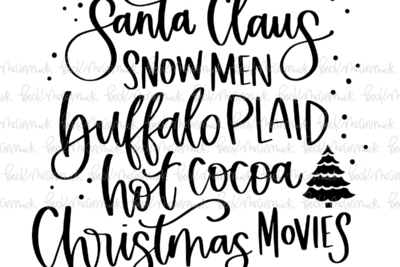 Santa Claus
SNOWMEN
buffalo PLAID
hot cocoa
Christmas MOVIES